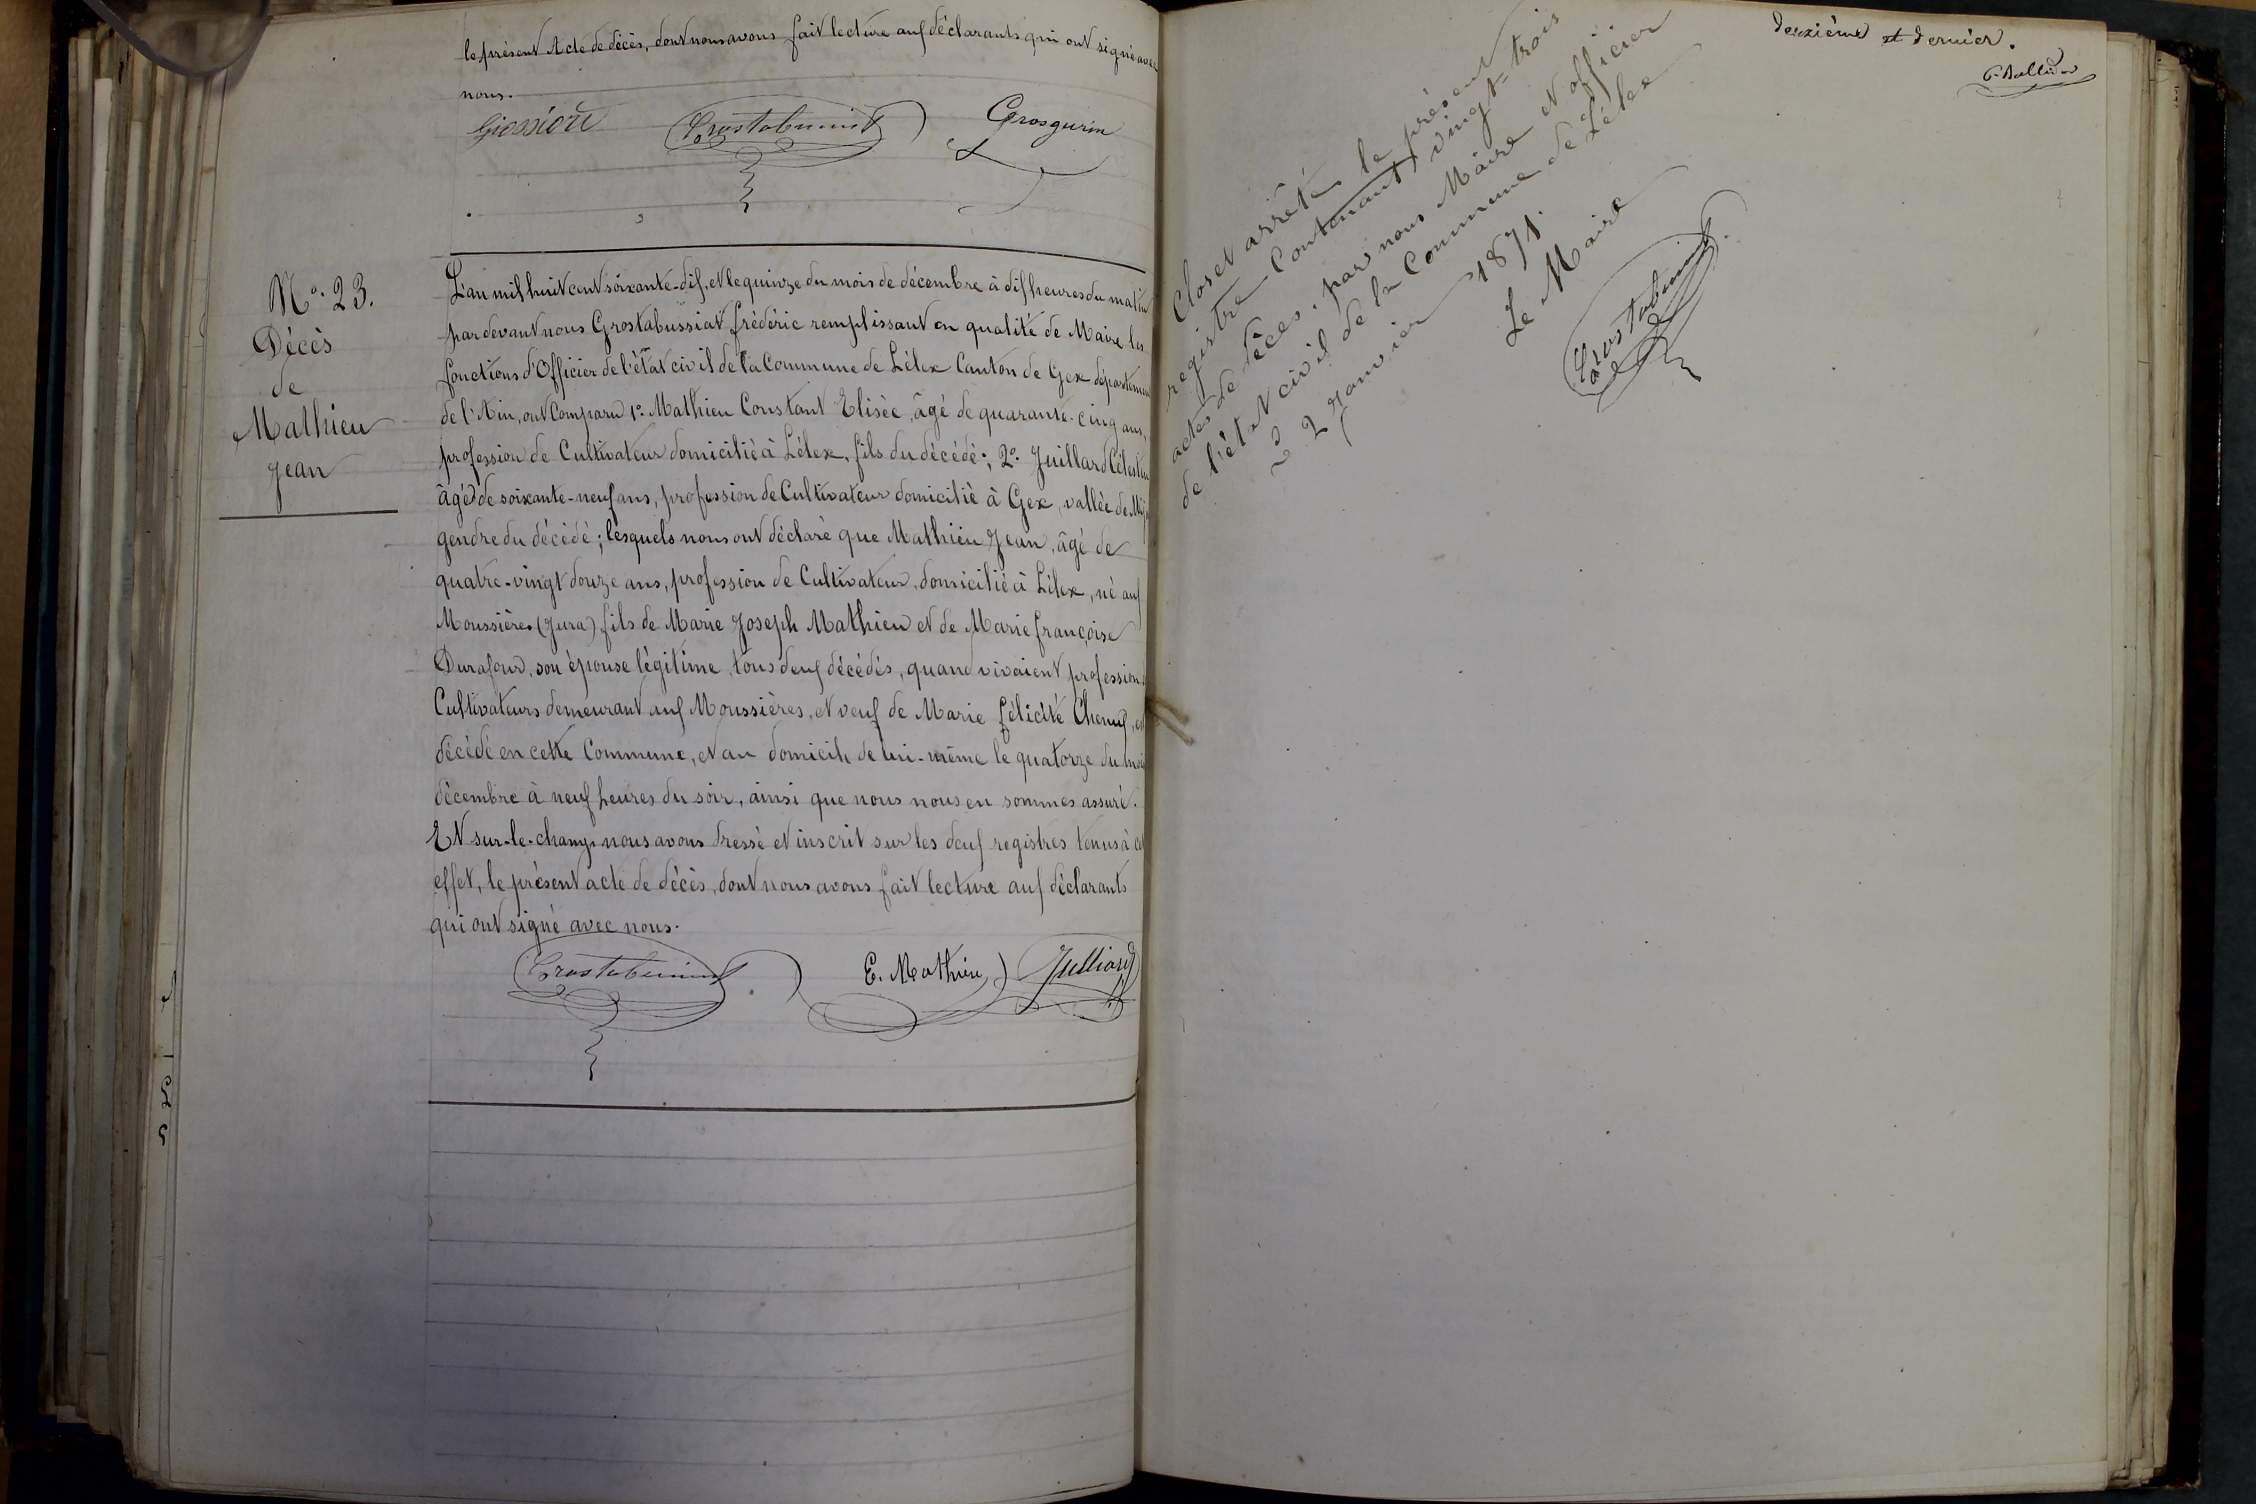 le présent Acte de décès, dont nous avons fait lecture aux déclarants qui ont signé avec
nous.
Grossiord Grostabussiat Grosgurin
N.º 23.
Décès
de
Mathieu
Jean
L'an mil huit cent soixante-dix, et le quinze du mois de décembre à dix heures du matin
par devant nous Grostabussiat frédéric remplissant en qualité de Maire les
fonctions d'Officier de l'état civil de la Commune de Lélex Canton de Gex département
de l'Ain, ont Comparu 1º Mathieu Constant Elisée, âgé de quarante-cinq ans,
profession de Cultivateur domicilié à Lélex, fils du décédé; 2º Juillard Célestin
âgé de soixante-neuf ans, profession de Cultivateur domicilié à Gex, vallée de Mijoux
gendre du décédé; lesquels nous ont déclaré que Mathieu Jean, âgé de
quatre-vingt douze ans, profession de Cultivateur, domicilié à Lélex, né aux
Moussières (Jura) fils de Marie Joseph Mathieu et de Marie françoise
Durafour, son épouse légitime tous deux décédés, quand vivaient profession
Cultivateurs demeurant aux Moussières, et veuf de Marie félicité, est
décédé en cette Commune, et au domicile de lui-même le quatorze du mois
décembre à neuf heures du soir, ainsi que nous nous en sommes assuré.
Et sur-le-champ nous avons dressé et inscrit sur les deux registres tenus à cet
effet, le présent acte de décès, dont nous avons fait lecture aux déclarants
qui ont signé avec nous.
Grostabussiat E. Mathieu Julliard
deuxième et dernier.
Clos et arrêté le présent
registre Contenant vingt-trois
actes de décès, par nous Maire et officier
de l'état civil de la Commune de Lélex
2 Janvier 1871.
Le Maire
Grostabussiat